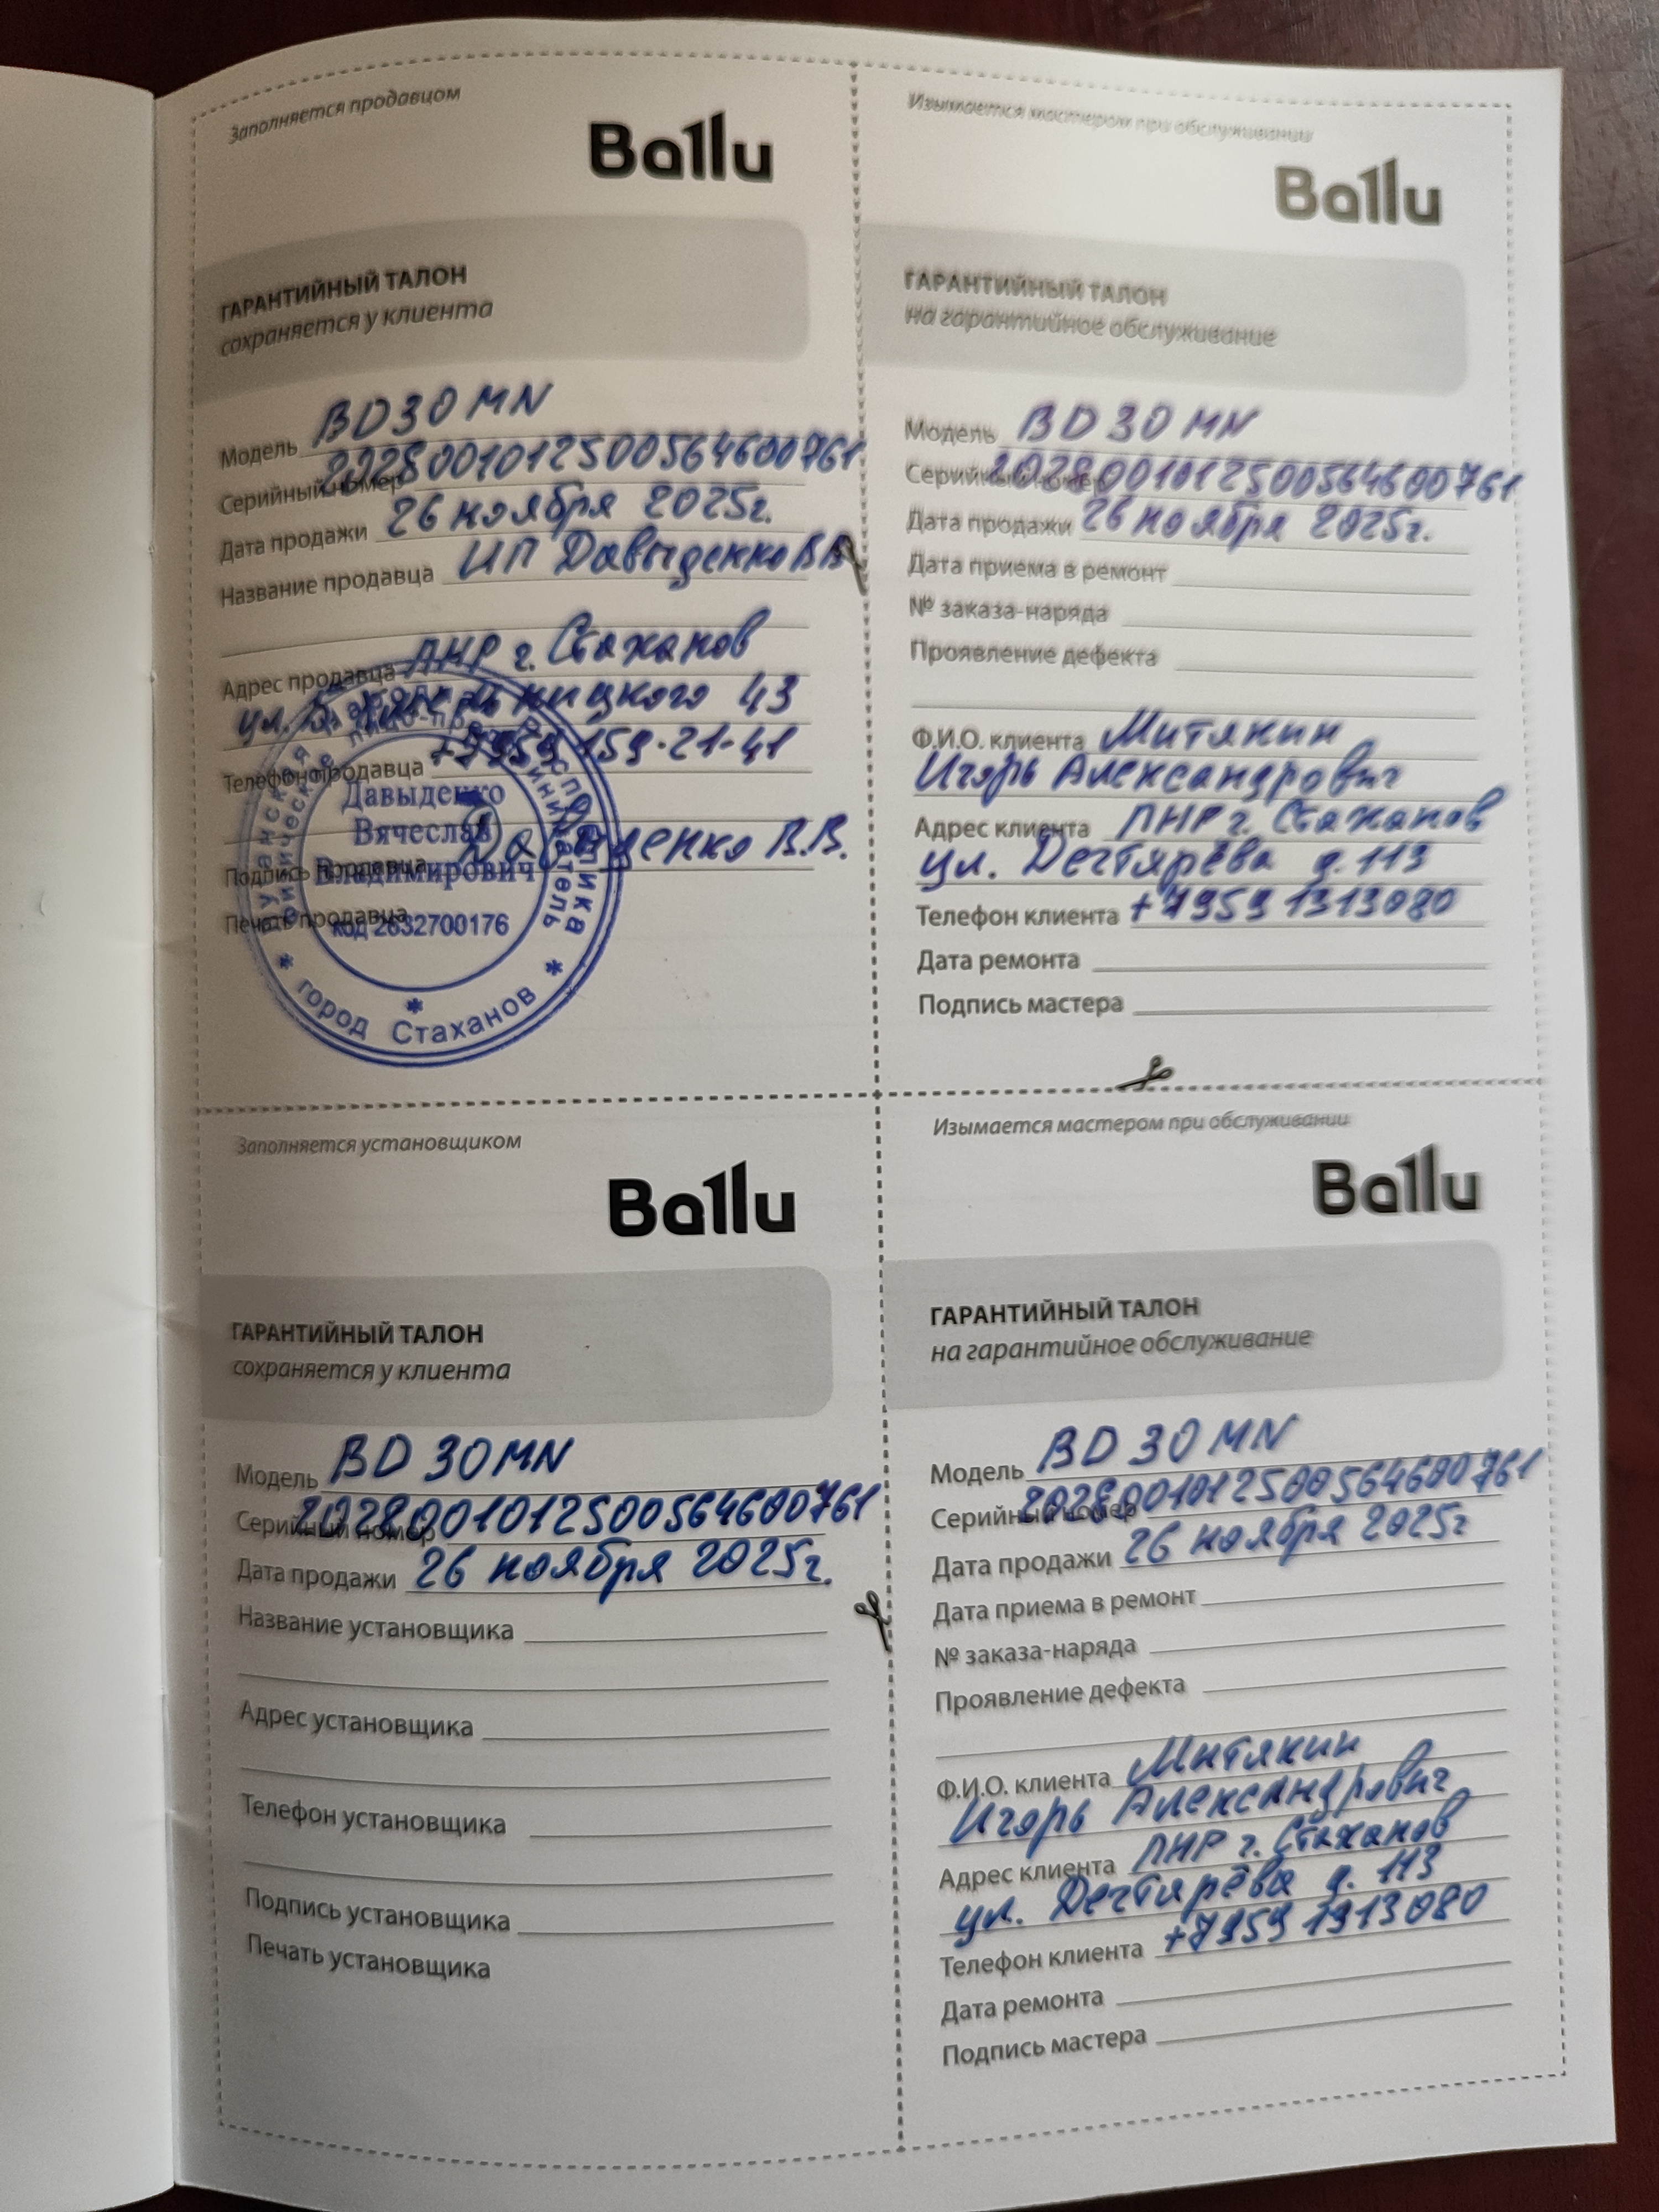 Заполняется продавцом
Ballu
ГАРАНТИЙНЫЙ ТАЛОН
сохраняется у клиента
Модель BD 30 MN
Серийный номер 2028001012500564600761
Дата продажи 26 ноября 2025г.
Название продавца ИП Давыденко В.В.
Адрес продавца ЛНР г. Стаханов
ул. Б. Хмельницкого 43
Телефон продавца +7959 159-21-41
Подпись продавца Давыденко В.В.
Печать продавца
Давыденко
Вячеслав
Владимирович
код 2632700176
город Стаханов
Изымается мастером при обслуживании
Ballu
ГАРАНТИЙНЫЙ ТАЛОН
на гарантийное обслуживание
Модель BD 30 MN
Серийный номер 2028001012500564600761
Дата продажи 26 ноября 2025г.
Дата приема в ремонт
№ заказа-наряда
Проявление дефекта
Ф.И.О. клиента Митякин
Игорь Александрович
Адрес клиента ЛНР г. Стаханов
ул. Дегтярёва д. 113
Телефон клиента +7959 1313080
Дата ремонта
Подпись мастера
Заполняется установщиком
Ballu
ГАРАНТИЙНЫЙ ТАЛОН
сохраняется у клиента
Модель BD 30 MN
Серийный номер 2028001012500564600761
Дата продажи 26 ноября 2025г.
Название установщика
Адрес установщика
Телефон установщика
Подпись установщика
Печать установщика
Изымается мастером при обслуживании
Ballu
ГАРАНТИЙНЫЙ ТАЛОН
на гарантийное обслуживание
Модель BD 30 MN
Серийный номер 2028001012500564600761
Дата продажи 26 ноября 2025г
Дата приема в ремонт
№ заказа-наряда
Проявление дефекта
Ф.И.О. клиента Митякин
Игорь Александрович
Адрес клиента ЛНР г. Стаханов
ул. Дегтярёва д. 113
Телефон клиента +7959 1313080
Дата ремонта
Подпись мастера